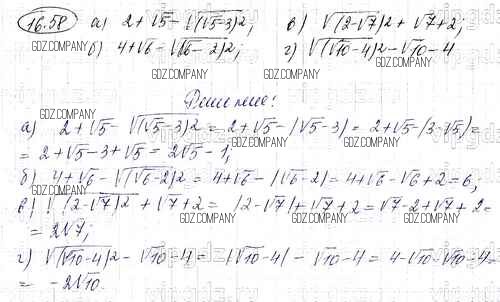 16.58 а) 2+√5-√(√5-3)²; в) √(2-√7)²+√7+2;
б) 4+√6-√(√6-2)²; г) √(√10-4)²-√10-4
GDZ.COMPANY GDZ.COMPANY
Решение:
а) 2+√5-√(√5-3)²=2+√5-|√5-3|=2+√5-(3-√5)=
=2+√5-3+√5=2√5-1;
б) 4+√6-√(√6-2)²=4+√6-|√6-2|=4+√6-√6+2=6;
в) √(2-√7)²+√7+2=|2-√7|+√7+2=√7-2+√7+2=
=2√7;
г) √(√10-4)²-√10-4=|√10-4|-√10-4=4-√10-√10-4=
=-2√10.